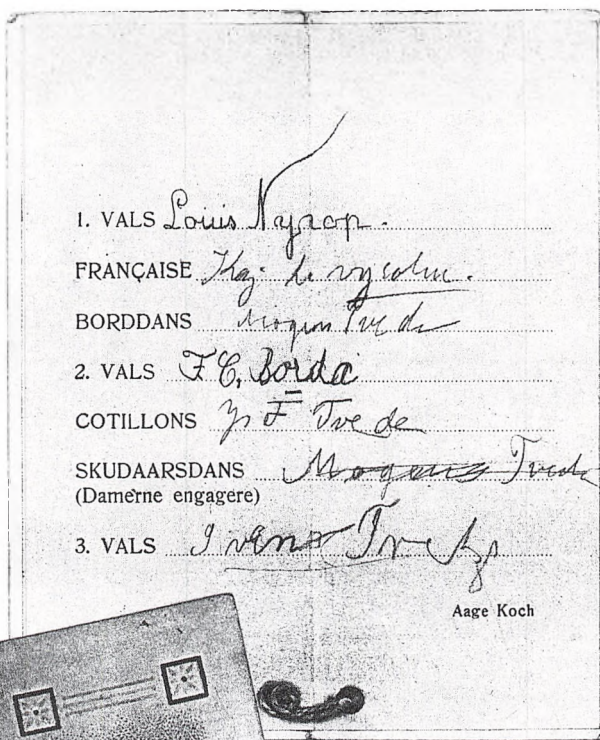 1. VALS Louis Nyrop.
FRANÇAISE Kaj.
BORDDANS Mogens Tvede
2. VALS F. C. Borda
COTILLONS Tvede
SKUDAARSDANS Mogens Tvede
(Damerne engagere)
3. VALS
Aage Koch